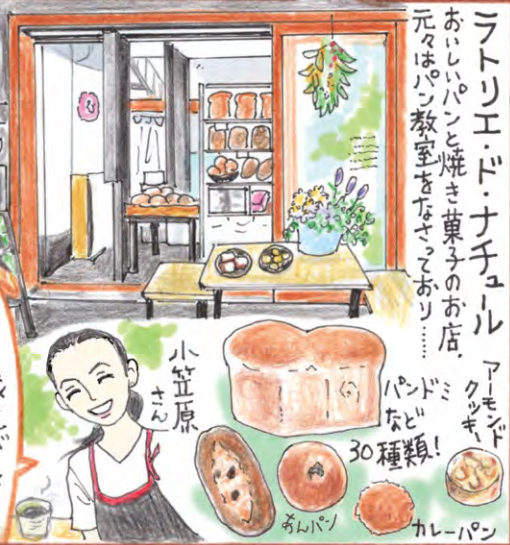 ラトリエ・ド・ナチュール
おいしいパンと焼き菓子のお店。
元々はパン教室をなさっており……
小笠原
さん
パンドミ
など
30種類！
アーモンド
クッキー
あんパン
カレーパン